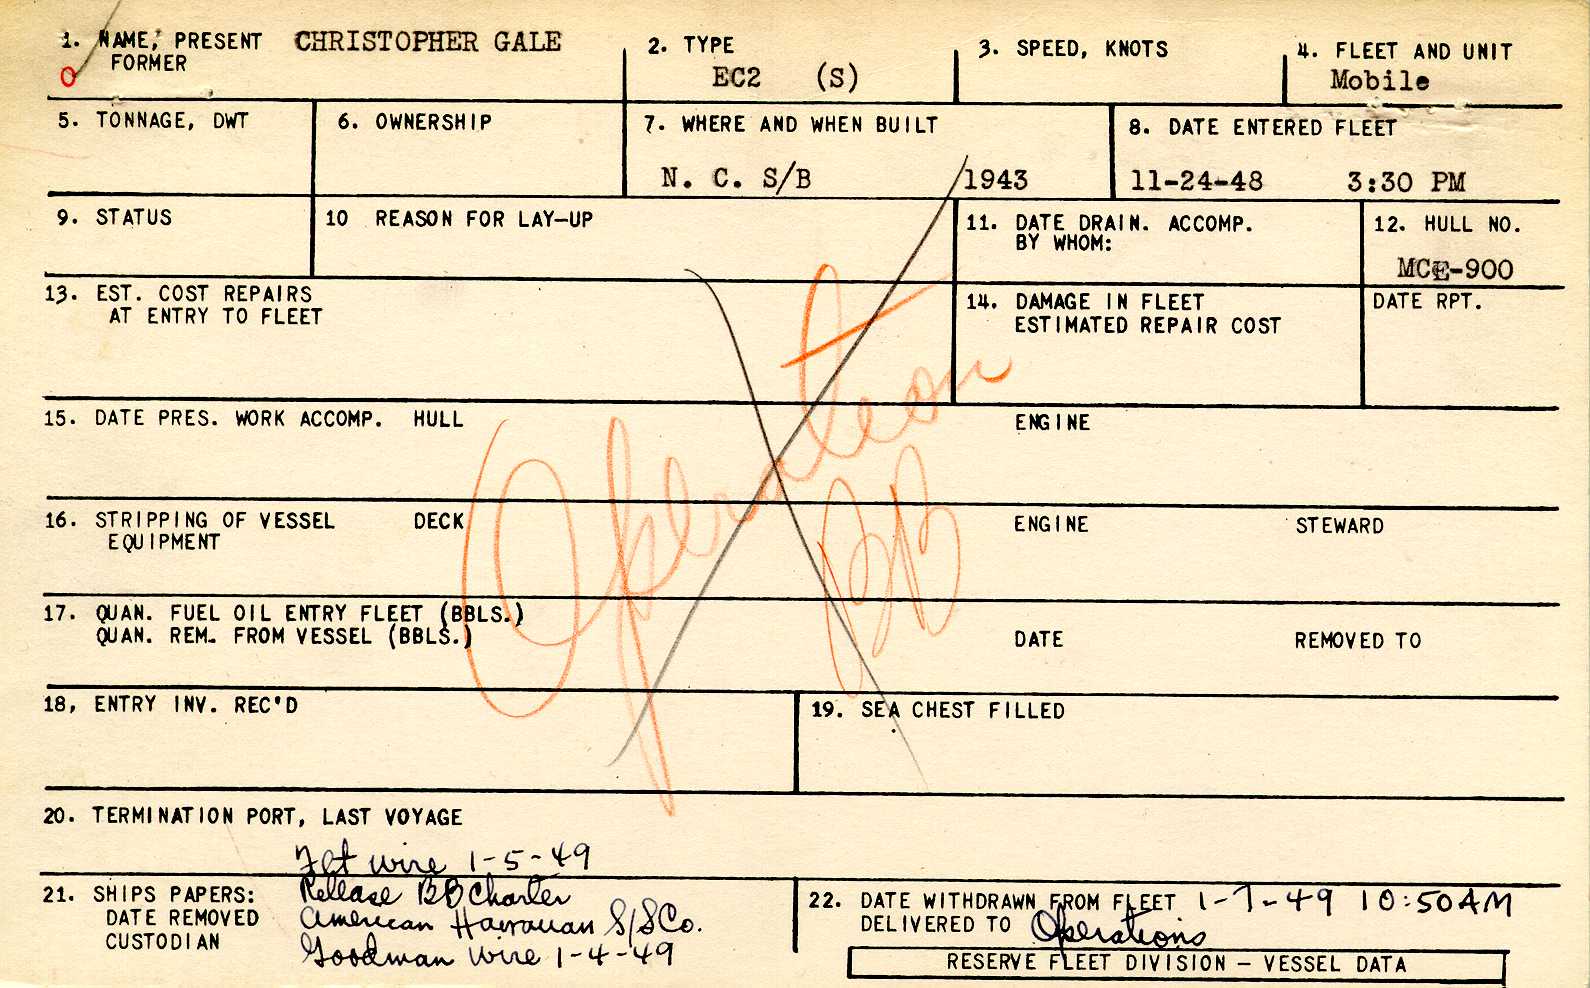 1. NAME, PRESENT CHRISTOPHER GALE
FORMER
O
2. TYPE
EC2 (S)
3. SPEED, KNOTS
4. FLEET AND UNIT
Mobile
5. TONNAGE, DWT
6. OWNERSHIP
7. WHERE AND WHEN BUILT
N. C. S/B 1943
8. DATE ENTERED FLEET
11-24-48 3:30 PM
9. STATUS
10 REASON FOR LAY-UP
11. DATE DRAIN. ACCOMP.
BY WHOM:
12. HULL NO.
MCE-900
13. EST. COST REPAIRS
AT ENTRY TO FLEET
14. DAMAGE IN FLEET
ESTIMATED REPAIR COST
DATE RPT.
Operation
BB
15. DATE PRES. WORK ACCOMP. HULL ENGINE
16. STRIPPING OF VESSEL DECK ENGINE STEWARD
EQUIPMENT
17. QUAN. FUEL OIL ENTRY FLEET (BBLS.)
QUAN. REM. FROM VESSEL (BBLS.) DATE REMOVED TO
18, ENTRY INV. REC'D
19. SEA CHEST FILLED
20. TERMINATION PORT, LAST VOYAGE
Flt wire 1-5-49
21. SHIPS PAPERS: Release BB Charter
DATE REMOVED American Hawaiian S/S Co.
CUSTODIAN Goodman wire 1-4-49
22. DATE WITHDRAWN FROM FLEET 1-7-49 10:50AM
DELIVERED TO Operations
RESERVE FLEET DIVISION - VESSEL DATA